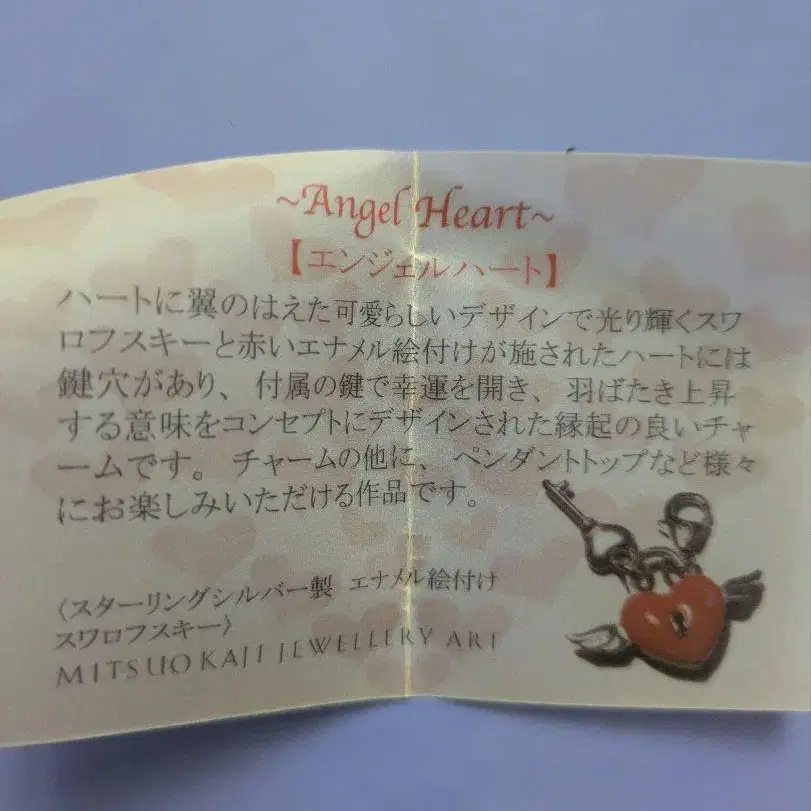 ~Angel Heart~
【エンジェルハート】
ハートに翼のはえた可愛らしいデザインで光り輝くスワ
ロフスキーと赤いエナメル絵付けが施されたハートには
鍵穴があり、付属の鍵で幸運を開き、羽ばたき上昇
する意味をコンセプトにデザインされた縁起の良いチャ
ームです。チャームの他に、ペンダントトップなど様々
にお楽しみいただける作品です。
〈スターリングシルバー製 エナメル絵付け
スワロフスキー〉
MITSUO KAJI JEWELLERY ART